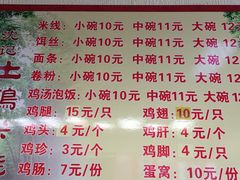 米线：小碗10元 中碗11元 大碗12
饵丝：小碗10元 中碗11元 大碗12
面条：小碗10元 中碗11元 大碗12
卷粉：小碗10元 中碗11元 大碗12
鸡汤泡饭：小碗10元 中碗11元 大碗12
鸡腿：15元/只 鸡翅：10元/只
鸡头：4元/个 鸡肝：4元/个
鸡珍：3元/个 鸡脚：4元/只
鸡肠：7元/份 蛋窝：10元/份
土鸡